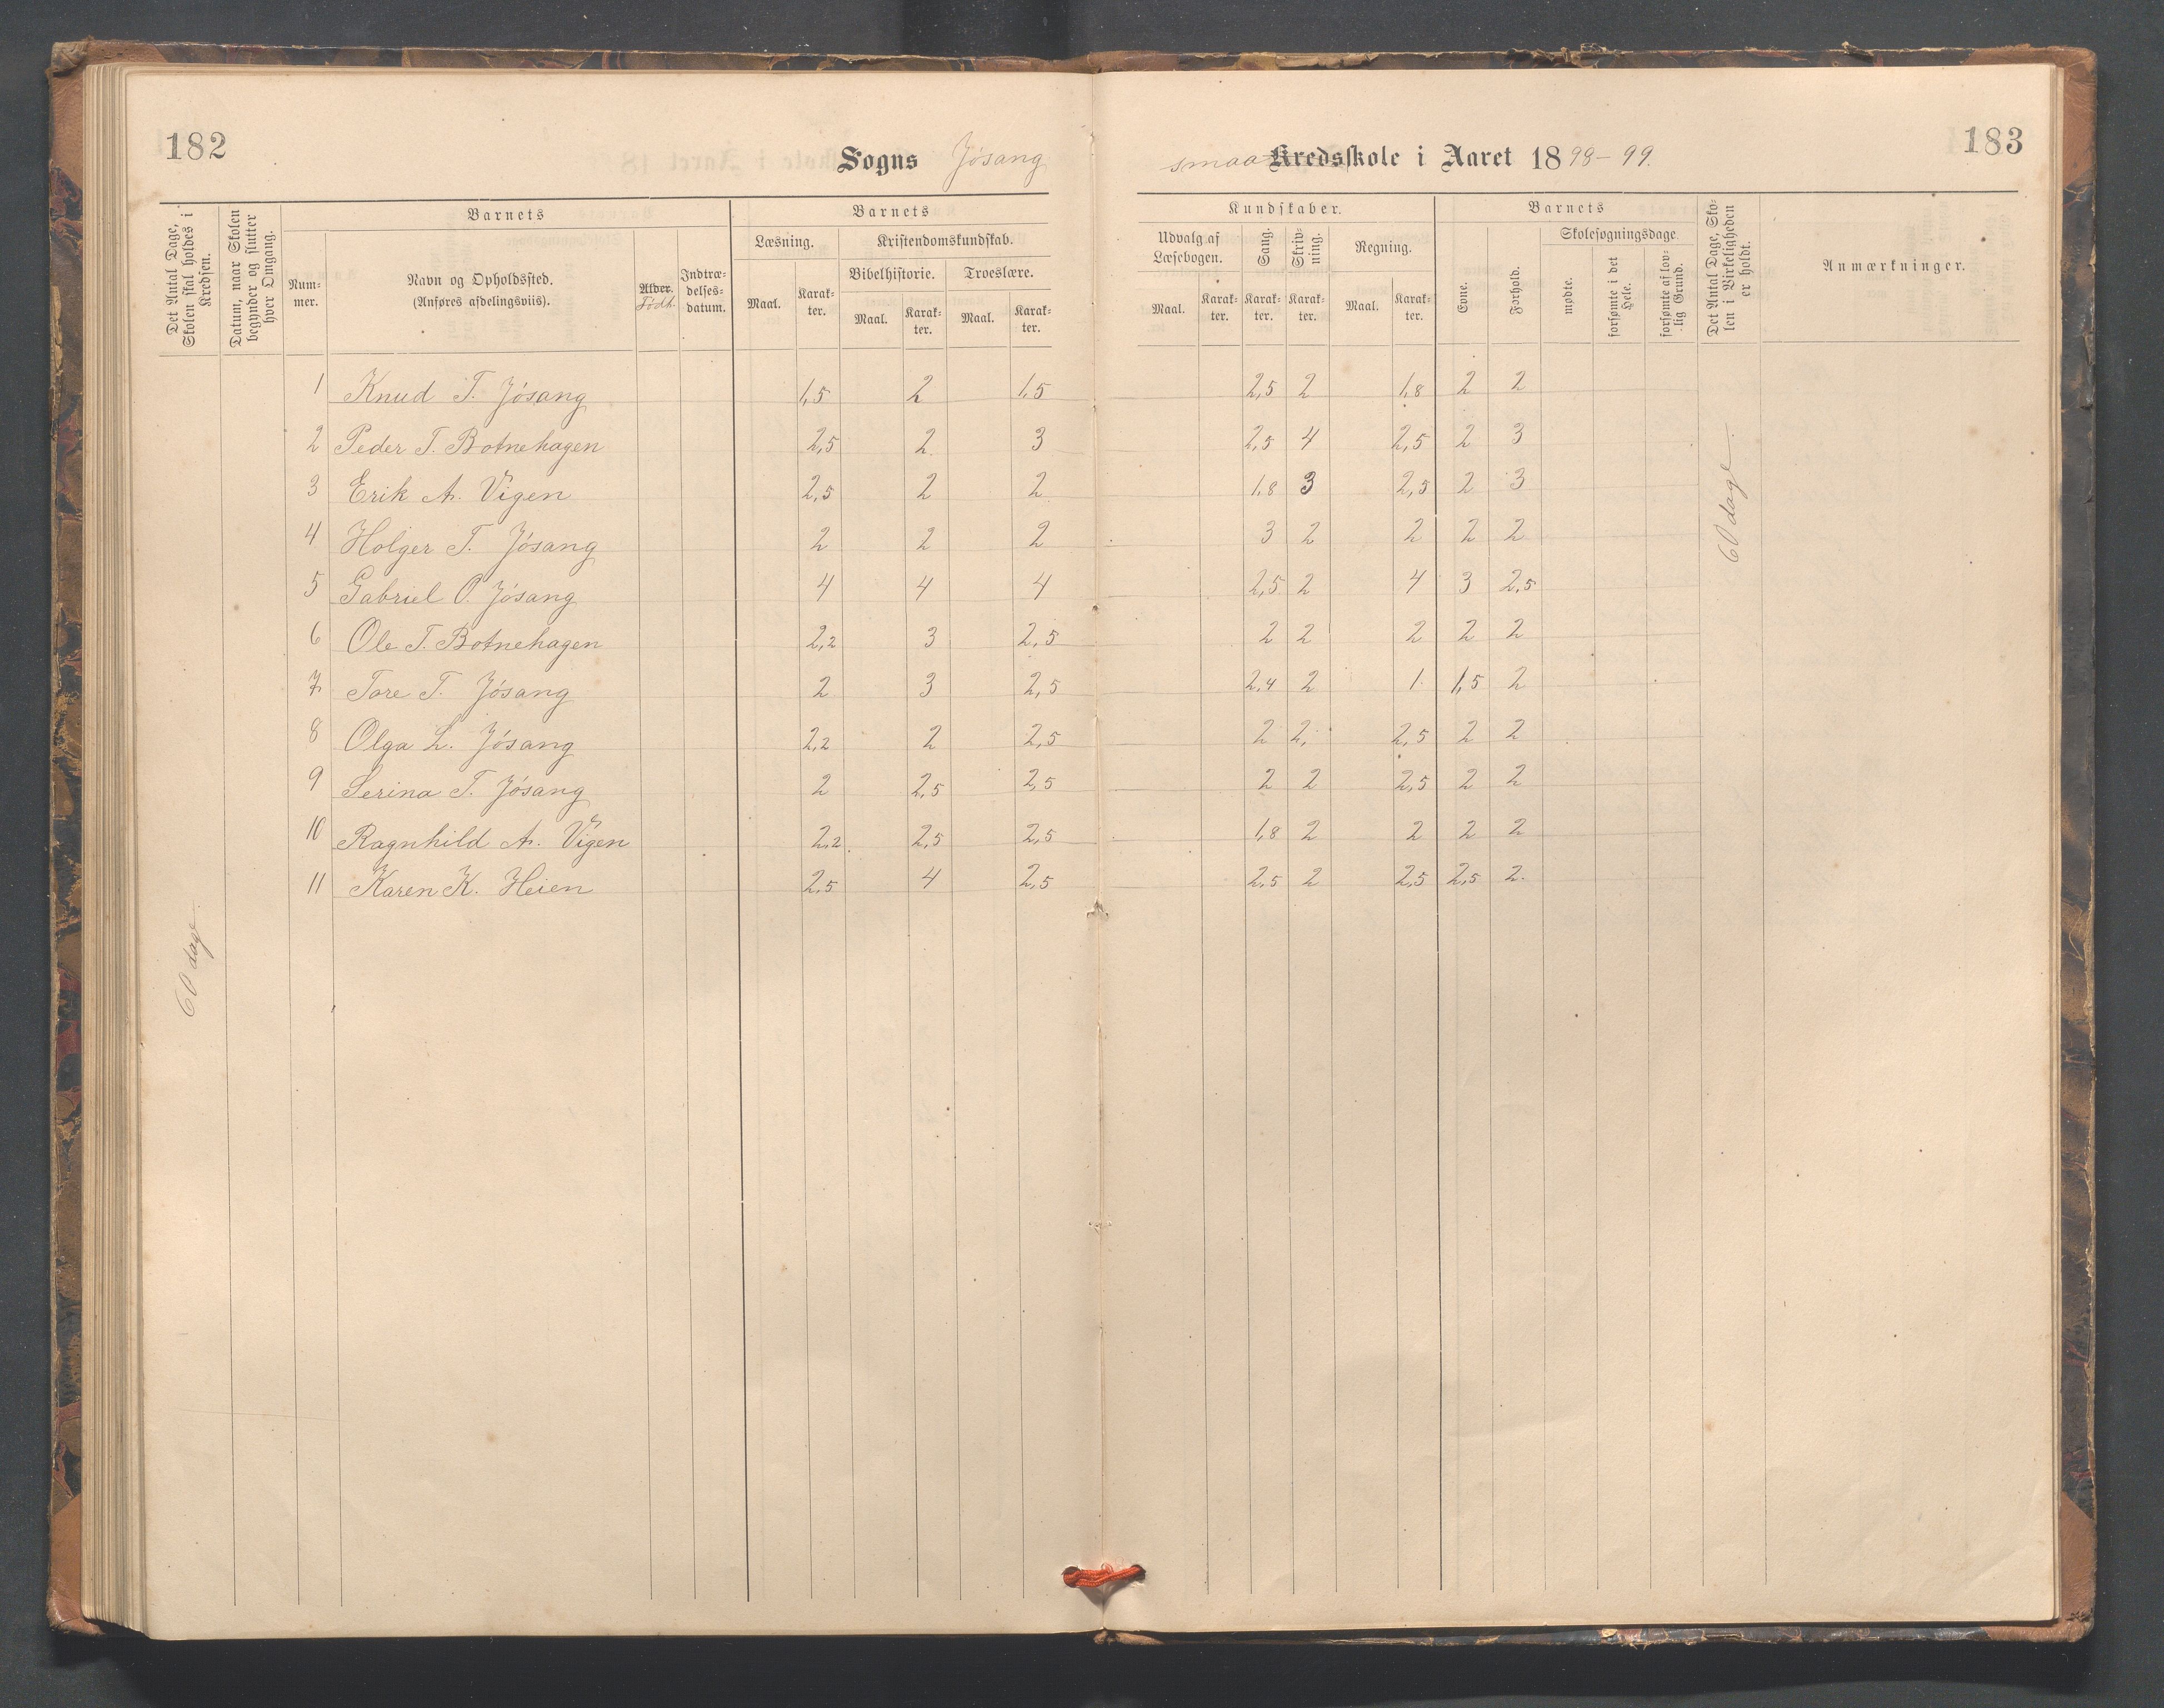 182
Sogns Jósang
Det Antal Dage, Skolen skal holdes i Kredsen.
Datum, naar Skolen begynder og slutter hver Omgang.
Barnets
Nummer.
Navn og Opholdssted.
(Anføres afdelingsviis).
Alder.
Födt.
Indtrædelsesdatum.
Barnets
Læsning.
Maal. Karakter.
Kristendomskundskab.
Bibelhistorie. Troeslære.
Maal. Karakter. Maal. Karakter.
smaa Kredsskole i Aaret 1898-99.
183
Kundskaber.
Udvalg af Læsebogen.
Maal. Karakter.
Sang.
Karakter.
Skrivning.
Karakter.
Regning.
Maal. Karakter.
Barnets
Evne.
Forhold.
Skolesøgningsdage.
mødte.
forsømte i det Hele.
forsømte af lovlig Grund.
Det Antal Dage, Skolen i Virkeligheden er holdt.
Anmærkninger.
1 Knud T. Jósang 1,5 2 1,5 2,5 2 1,8 2 2
2 Peder T. Botnehagen 2,5 2 3 2,5 4 2,5 2 3
3 Erik A. Vigen 2,5 2 2 1,8 3 2,5 2 3
4 Holger T. Jósang 2 2 2 3 2 2 2 2
5 Gabriel O. Jósang 4 4 4 2,5 2 4 3 2,5
6 Ole T. Botnehagen 2,2 3 2,5 2 2 2 2 2
7 Tore T. Jósang 2 3 2,5 2,4 2 1 1,5 2
8 Olga L. Jósang 2,2 2 2,5 2 2, 2,5 2 2
9 Serina T. Jósang 2 2,5 2,5 2 2 2,5 2 2
10 Ragnhild A. Vigen 2,2 2,5 2,5 1,8 2 2 2 2
11 Karen K. Heien 2,5 4 2,5 2,5 2 2,5 2,5 2.
60 dage.
60 dage.